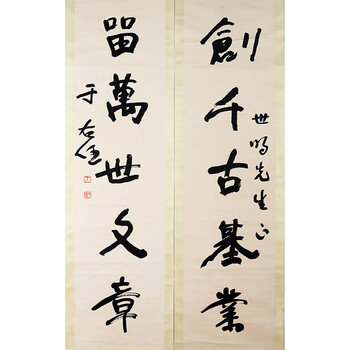 創千古基業
世鳴先生正
留萬世文章
于右任